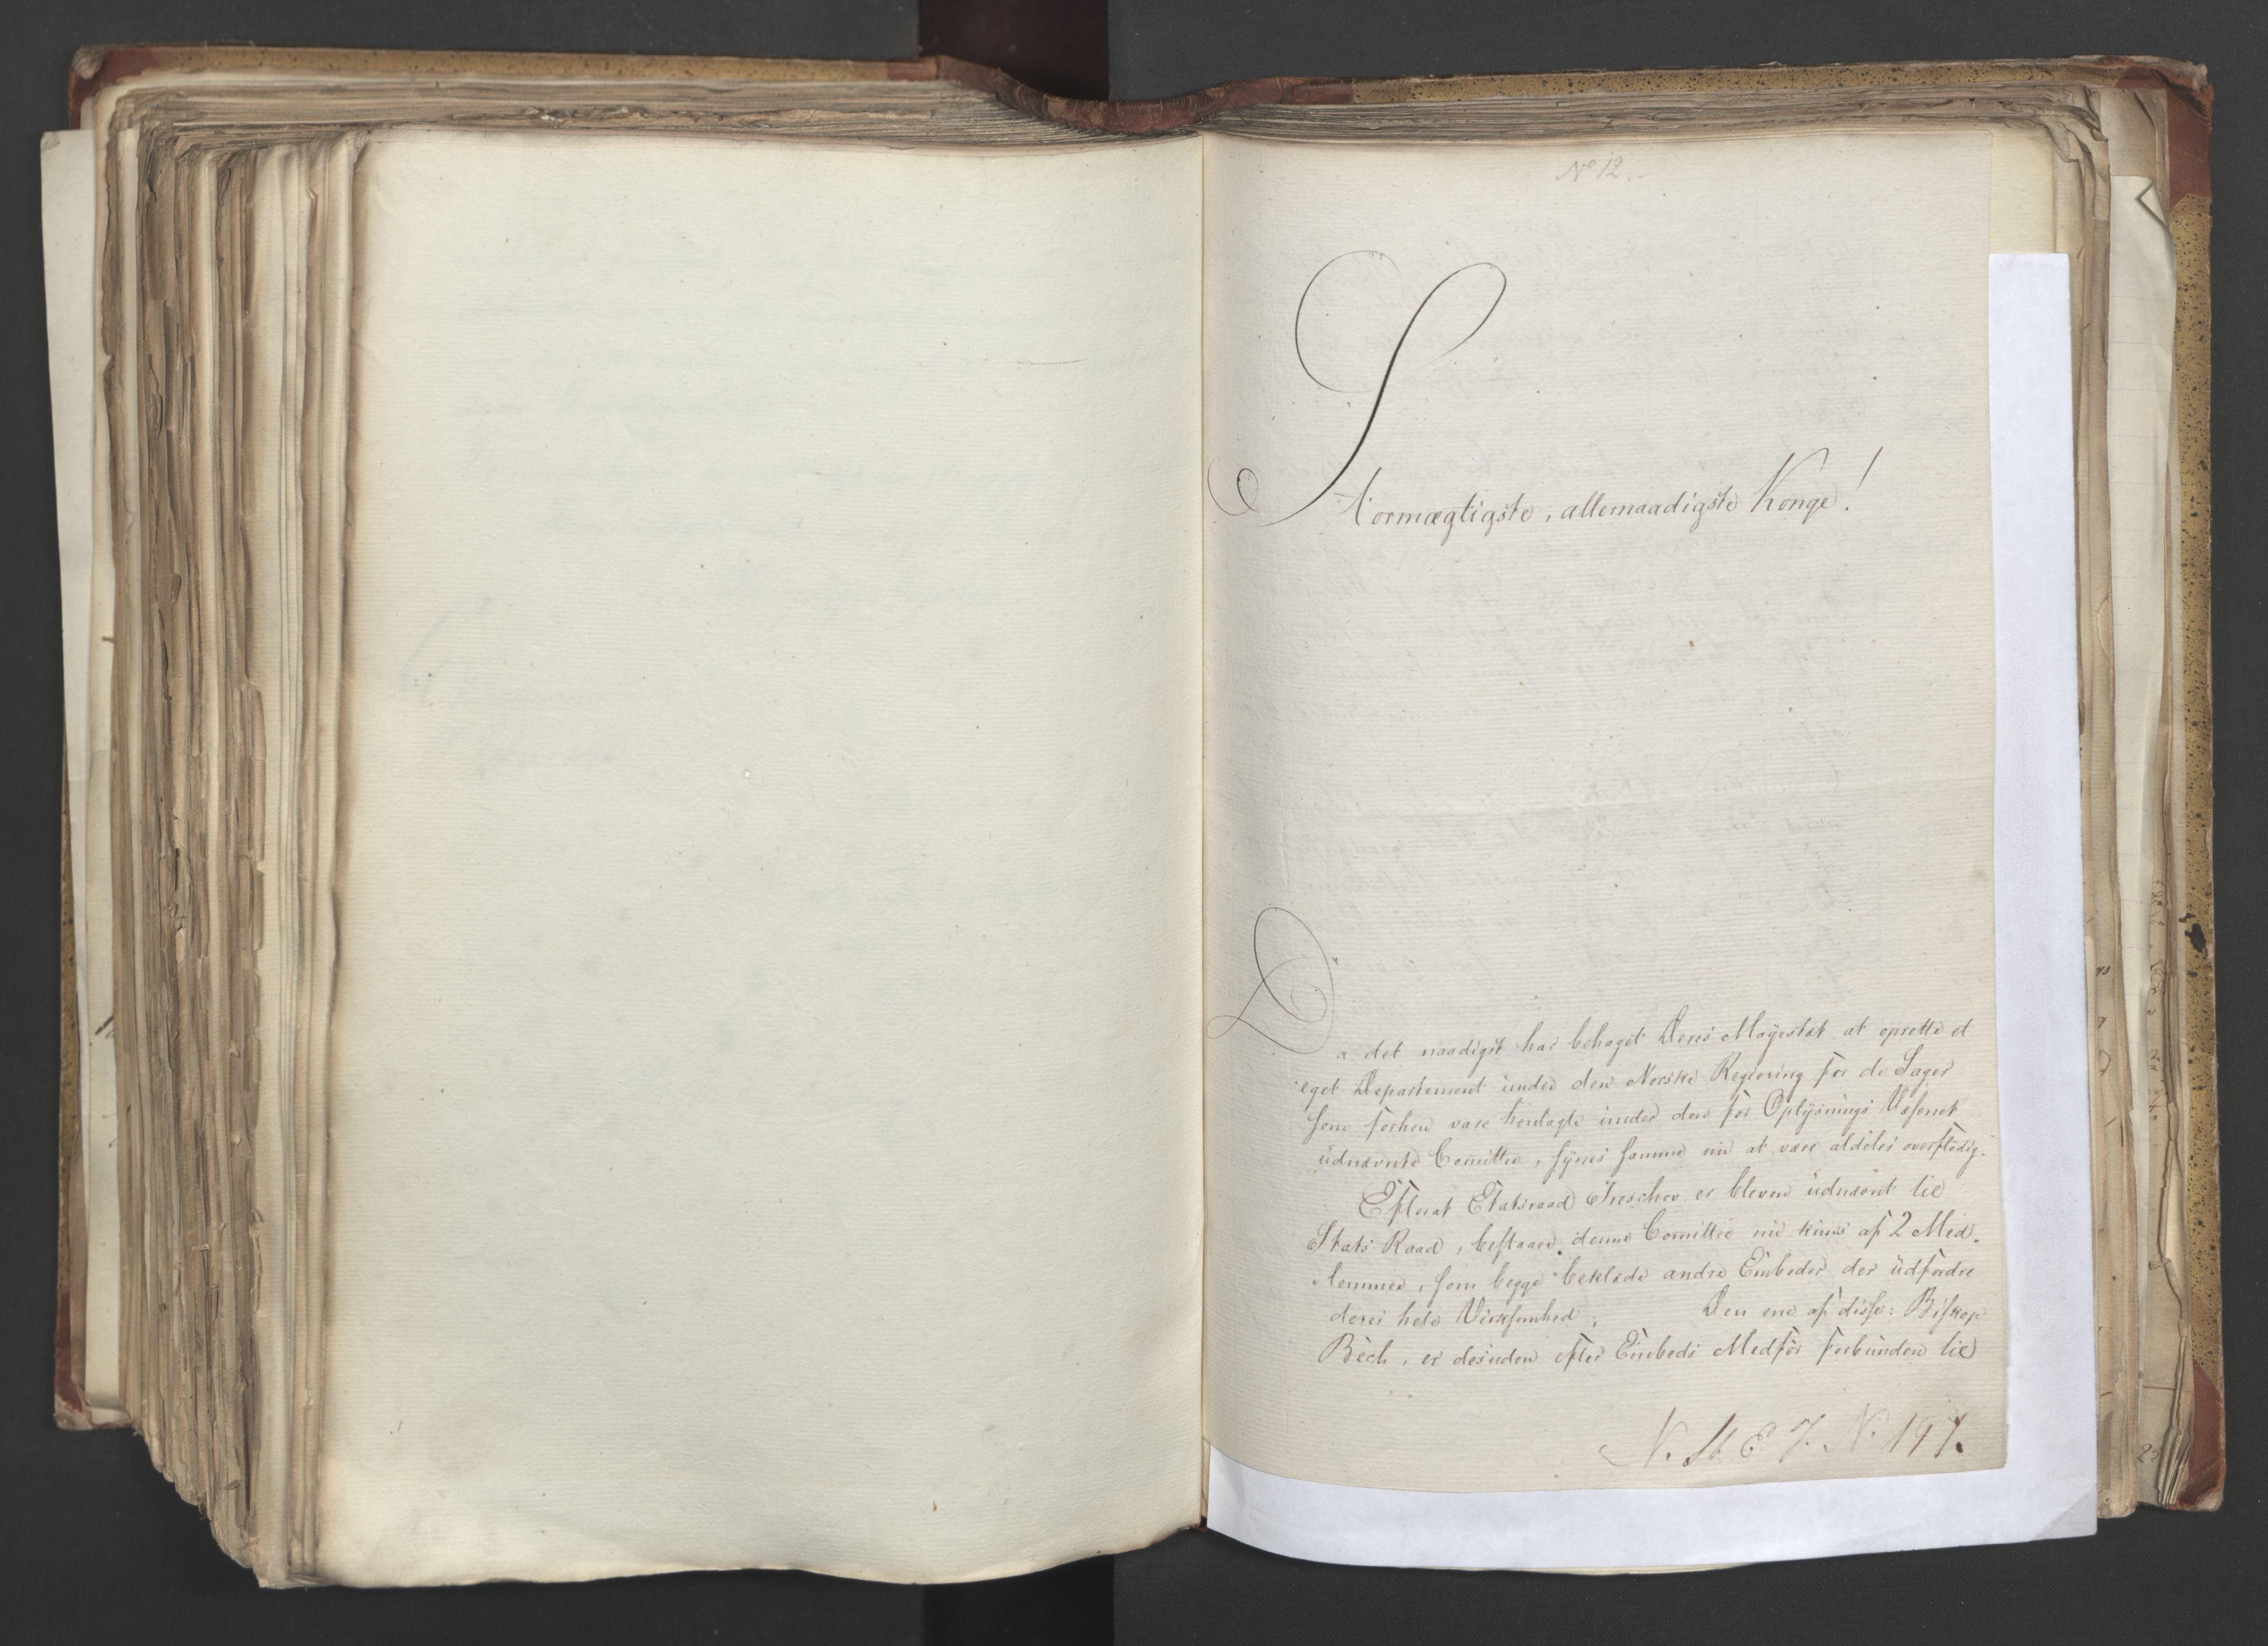 No 12.
Stormægtigste, allernaadigste Konge!
Da det naadigst har behaget Deres Mayestæt at oprette et
eget Departement under den Norske Regiering for de Sager
som forhen vare henlagte under den for Oplysnings Væsenet
udnævnte Comittee, synes samme nu at være aldeles overflødig.
Efterat Etatsraad Treschow er bleven udnævnt til
Stats-Raad, bestaaer denne Comittee nu kuns af 2 Med-
lemmer, som begge beklæde andre Embeder der udfordre
deres hele Virksomhed; Den ene af disse: Biskop
Bech, er desuden efter Embeds Medför forbunden til
N. St E 7. N. 197.